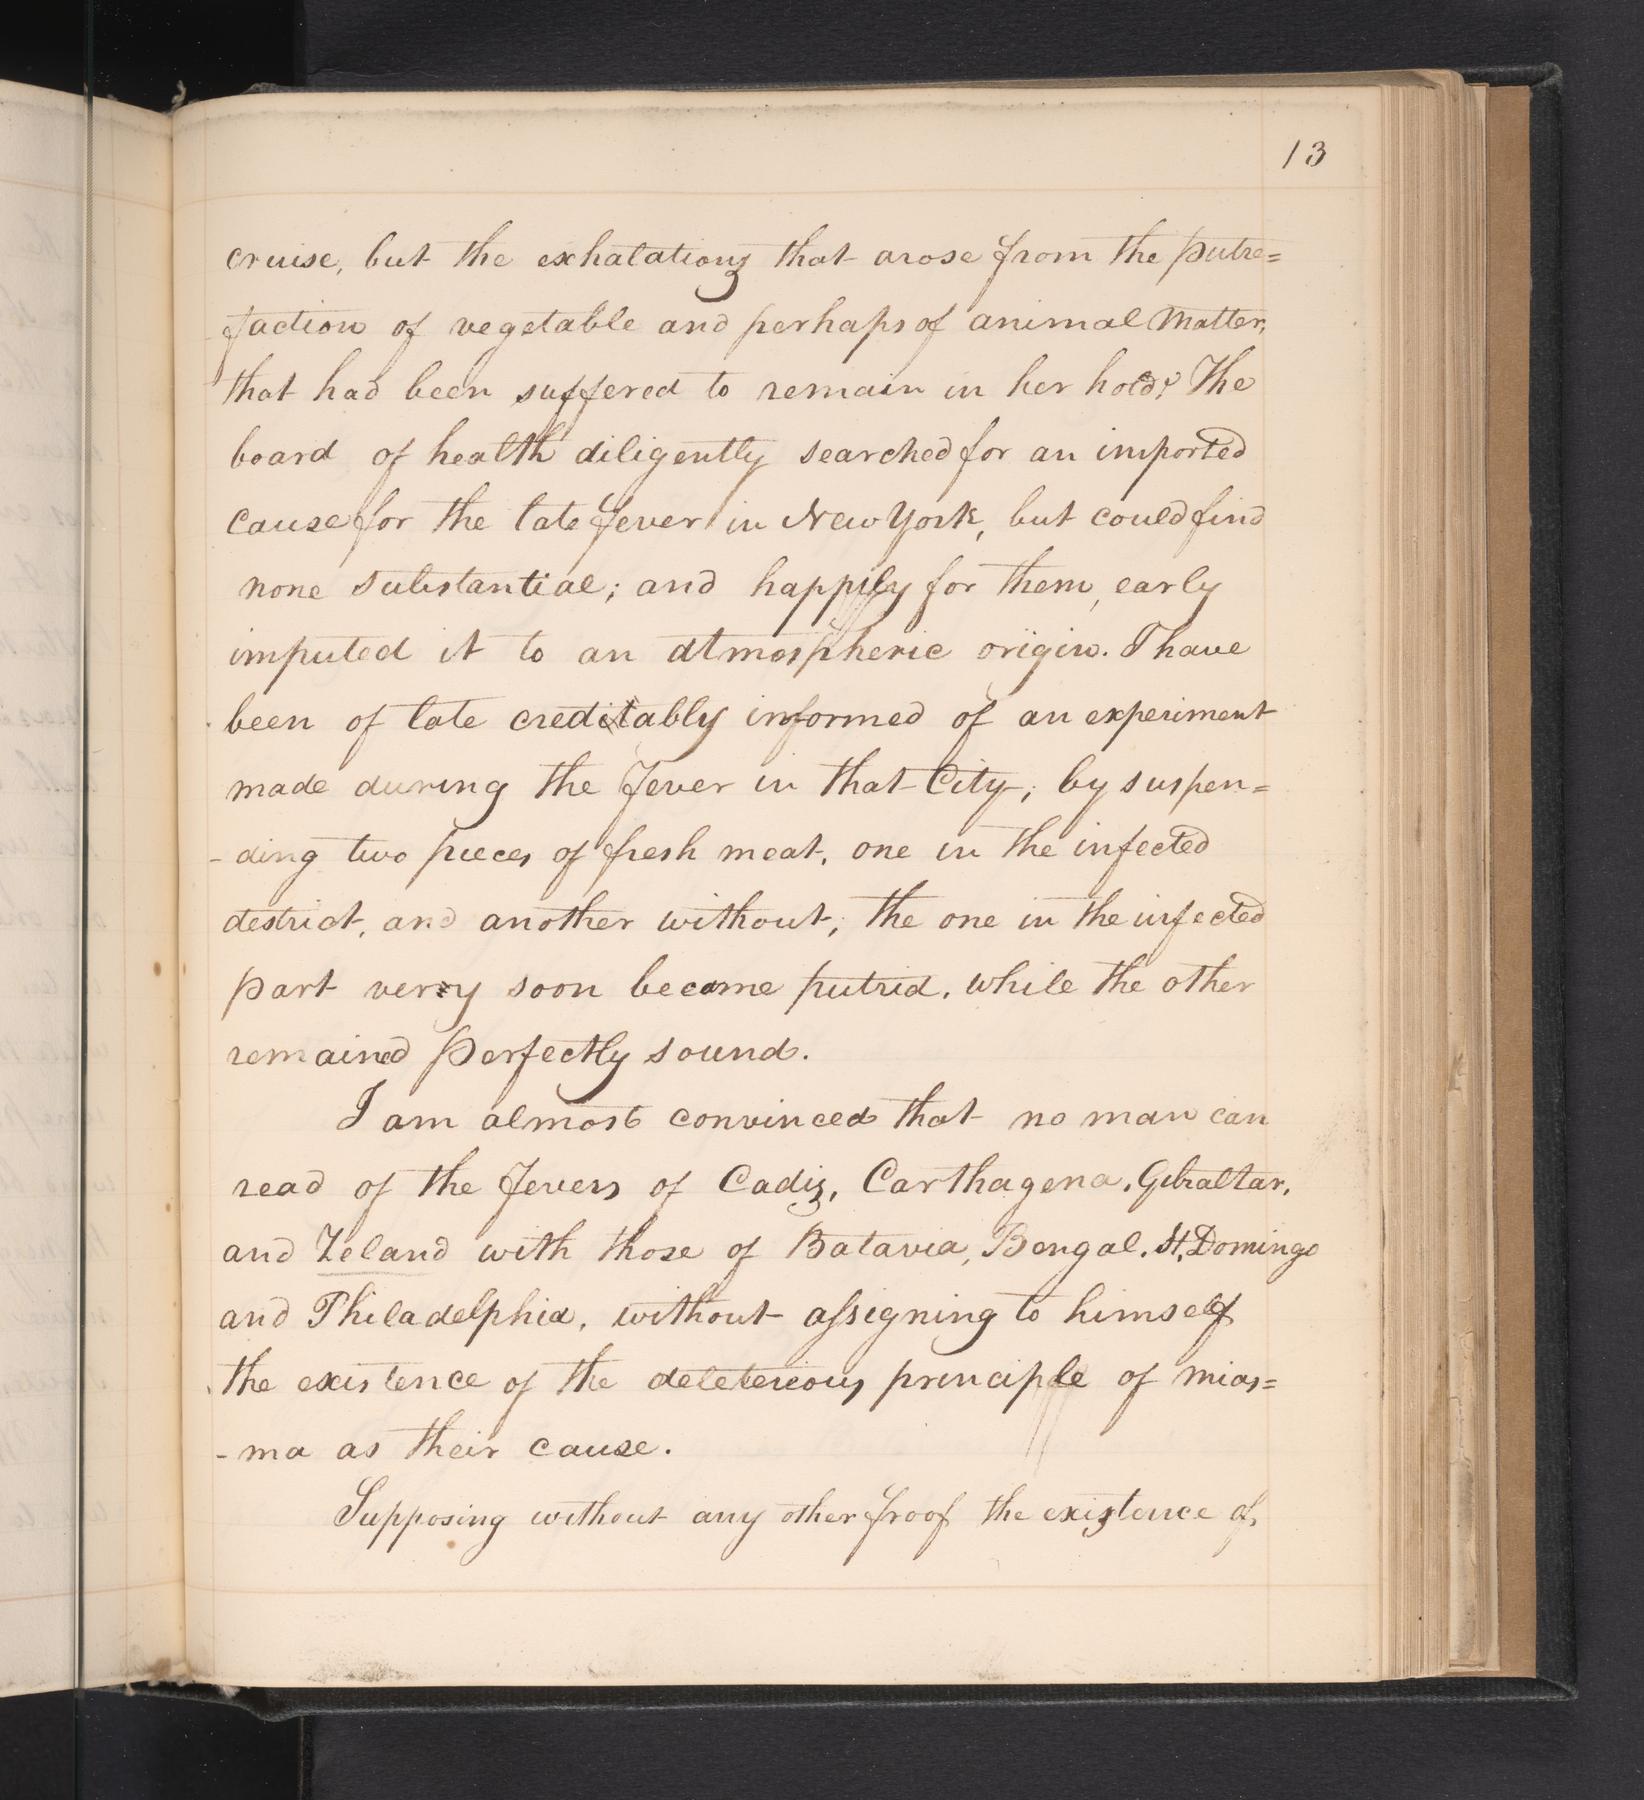 13
cruise, but the exhalations that arose from the putre=
faction of vegetable and perhaps of animal Matter,
that had been suffered to remain in her hold? The
board of health diligently searched for an imported
cause for the late fever in New York, but could find
none substantial; and happily for them, early
imputed it to an atmospheric origin. I have
been of late creditably informed of an experiment
made during the fever in that City, by suspen=
-ding two pieces of fresh meat, one in the infected
destrict, and another without; the one in the infected
part very soon became putrid, while the other
remained perfectly sound.
I am almost convinced that no man can
read of the fevers of Cadiz, Carthagena, Gibraltar,
and Zeland with those of Batavia, Bengal, St. Domingo
and Philadelphia, without assigning to himself
the existence of the deletereous principle of mias=
-ma as their cause.
Supposing without any other proof the existence of,